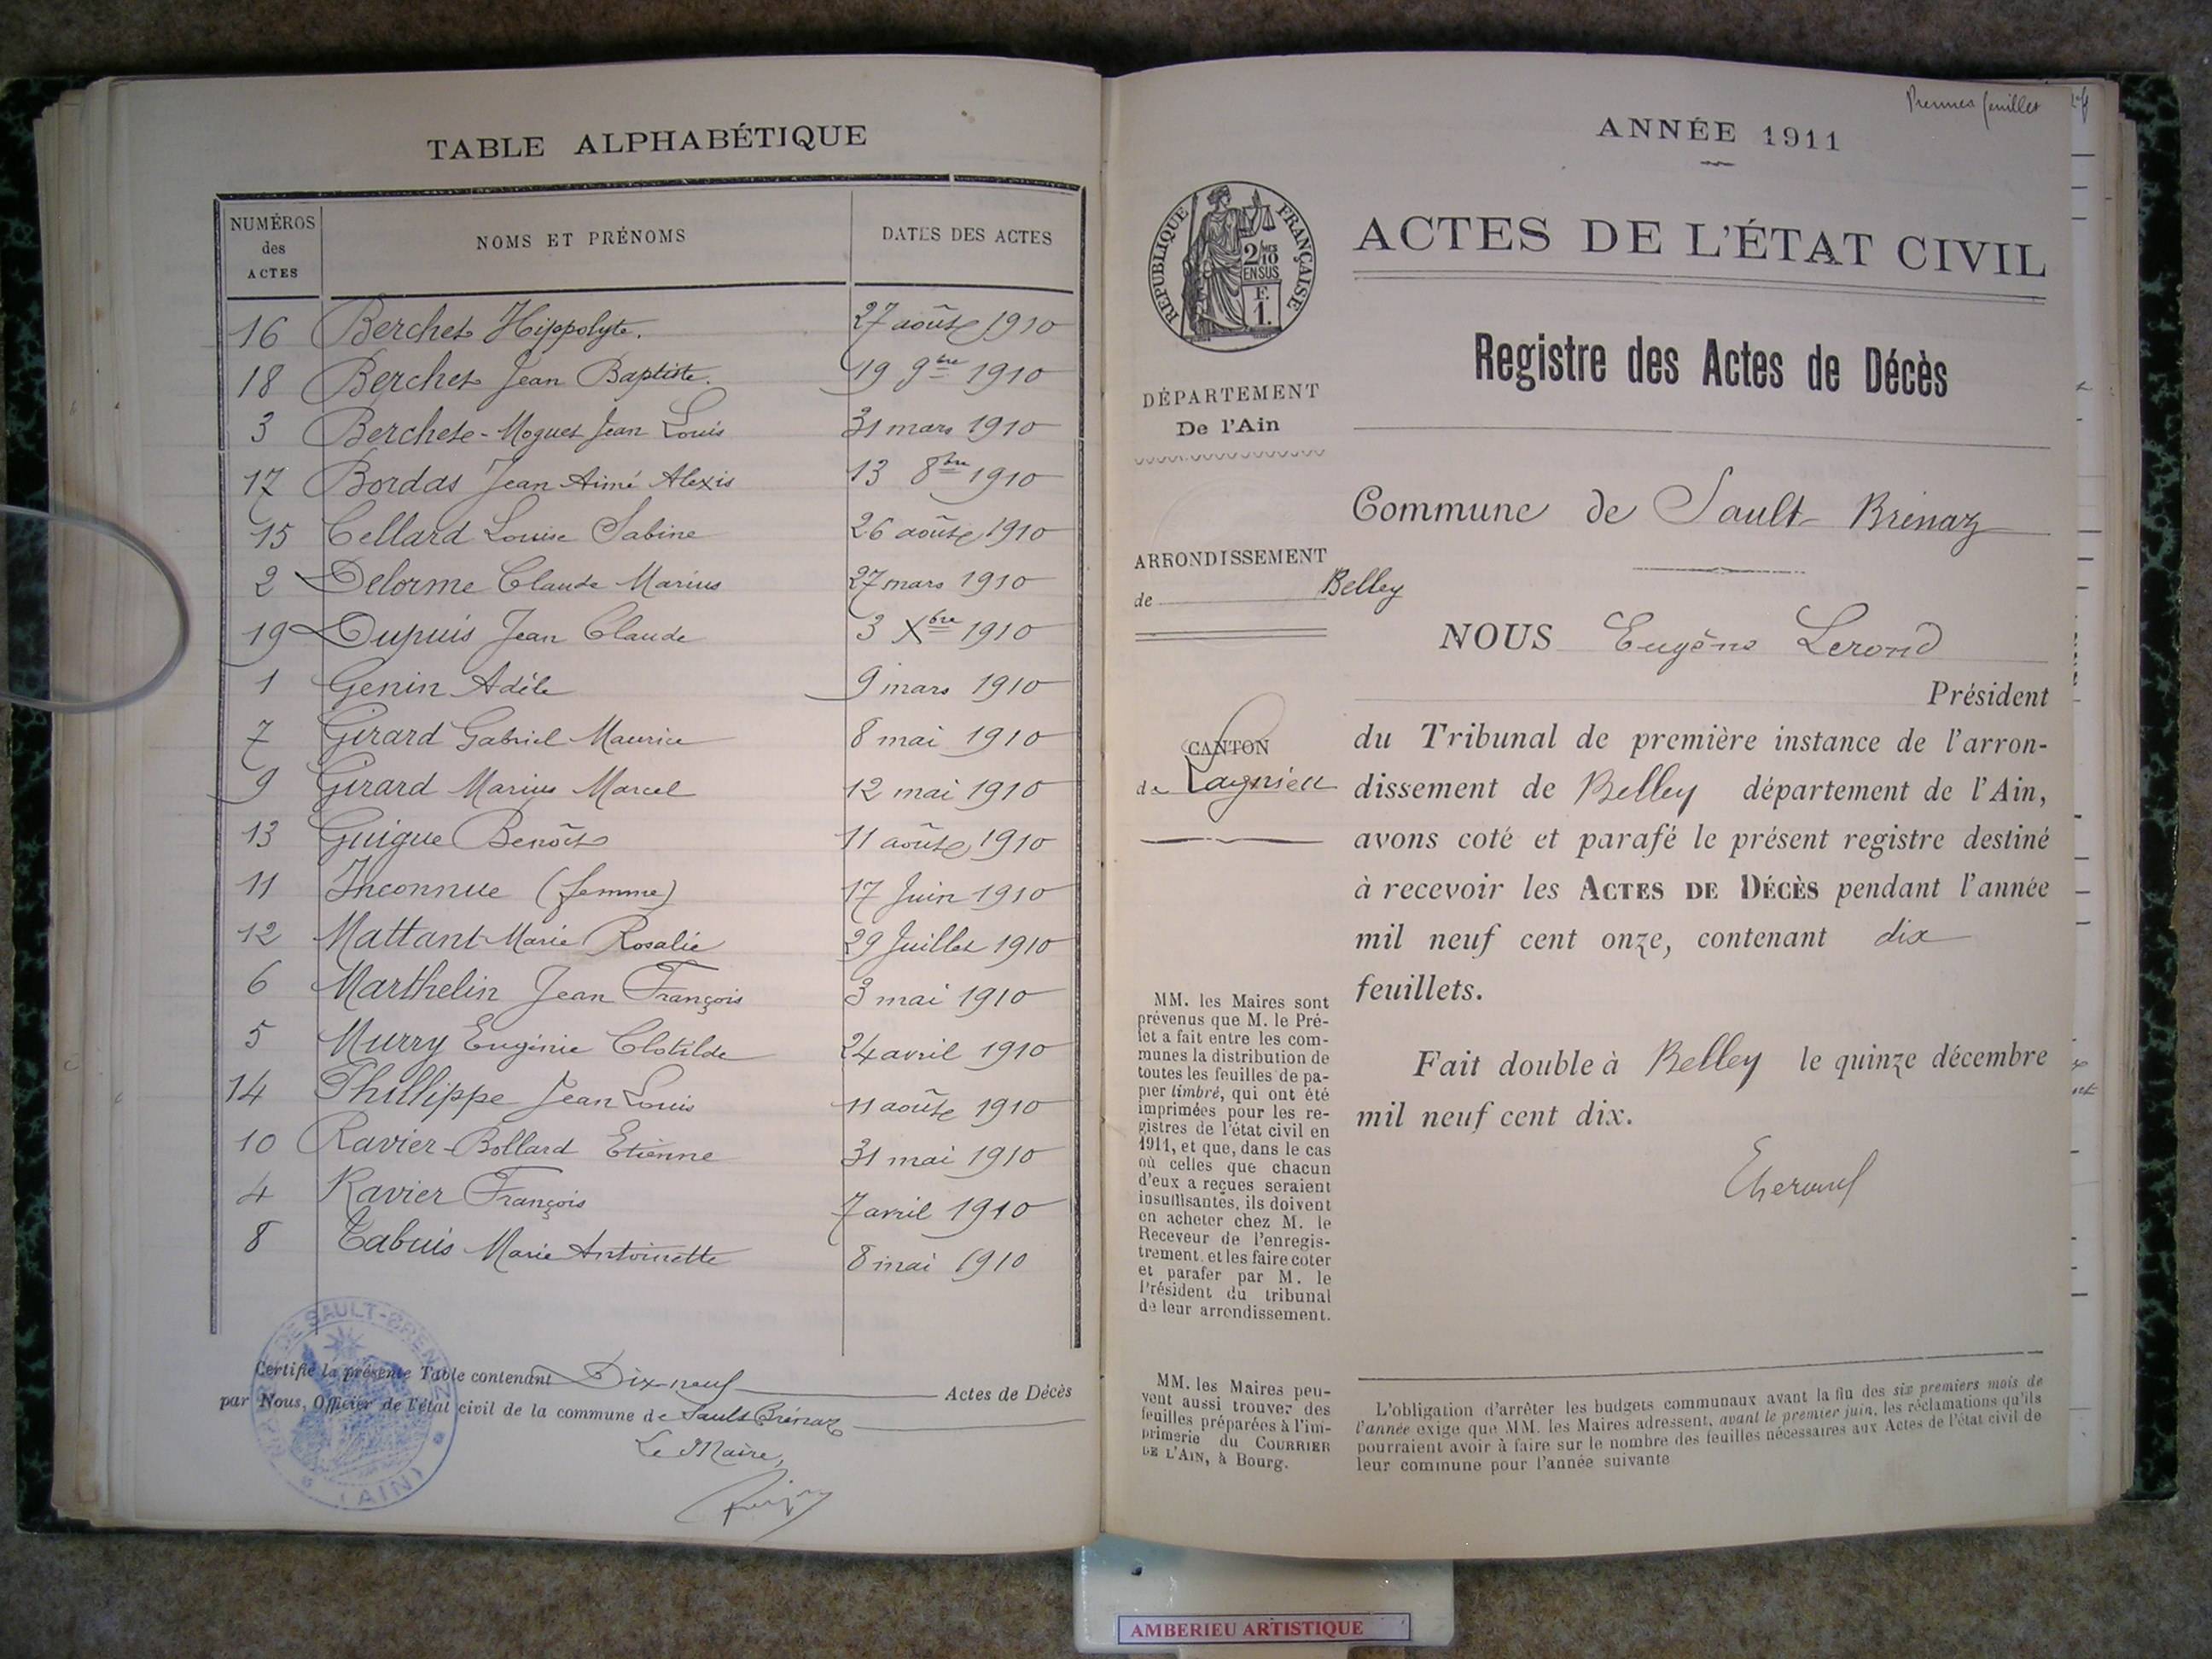 TABLE ALPHABÉTIQUE
NUMÉROS des ACTES NOMS ET PRÉNOMS DATES DES ACTES
16 Berchet Hippolyte. 27 août 1910
18 Berchet Jean Baptiste. 19 9bre 1910
3 Berchet-Moguet Jean Louis 31 mars 1910
17 Bordas Jean Aimé Alexis 13 8bre 1910
15 Cellard Louise Sabine 26 août 1910
2 Delorme Claude Marius 27 mars 1910
19 Dupuis Jean Claude 3 Xbre 1910
1 Genin Adèle 9 mars 1910
7 Girard Gabriel Maurice 8 mai 1910
9 Girard Marius Marcel 12 mai 1910
13 Guigue Benoît 11 août 1910
11 Inconnue (femme) 17 Juin 1910
12 Mattant Marie Rosalie 29 Juillet 1910
6 Marthelin Jean François 3 mai 1910
5 Murry Eugénie Clotilde 24 avril 1910
14 Phillippe Jean Louis 11 août 1910
10 Ravier-Bollard Etienne 31 mai 1910
4 Ravier François 7 avril 1910
8 Tabuis Marie Antoinette 8 mai 1910
Certifié la présente Table contenant Dix-neuf Actes de Décès
par Nous, Officier de l'état civil de la commune de Sault Brénaz
Le Maire,
(AIN)
Premier feuillet
ANNÉE 1911
RÉPUBLIQUE FRANÇAISE
2/10
EN SUS
F.
1.
ACTES DE L'ÉTAT CIVIL
Registre des Actes de Décès
DÉPARTEMENT
De l'Ain
Commune de Sault Brénaz
ARRONDISSEMENT
de Belley
NOUS Eugène Lerond
Président
CANTON
de Lagnieu
du Tribunal de première instance de l'arron-
dissement de Belley département de l'Ain,
avons coté et parafé le présent registre destiné
à recevoir les ACTES DE DÉCÈS pendant l'année
mil neuf cent onze, contenant dix
feuillets.
Fait double à Belley le quinze décembre
mil neuf cent dix.
MM. les Maires sont
prévenus que M. le Pré-
fet a fait entre les com-
munes la distribution de
toutes les feuilles de pa-
pier timbré, qui ont été
imprimées pour les re-
gistres de l'état civil en
1911, et que, dans le cas
où celles que chacun
d'eux a reçues seraient
insuffisantes, ils doivent
en acheter chez M. le
Receveur de l'enregis-
trement, et les faire coter
et parafer par M. le
Président du tribunal
de leur arrondissement.
MM. les Maires peu-
vent aussi trouver des
feuilles préparées à l'im-
primerie du COURRIER
DE L'AIN, à Bourg.
L'obligation d'arrêter les budgets communaux avant la fin des six premiers mois de
l'année exige que MM. les Maires adressent, avant le premier juin, les réclamations qu'ils
pourraient avoir à faire sur le nombre des feuilles nécessaires aux Actes de l'état civil de
leur commune pour l'année suivante
AMBERIEU ARTISTIQUE